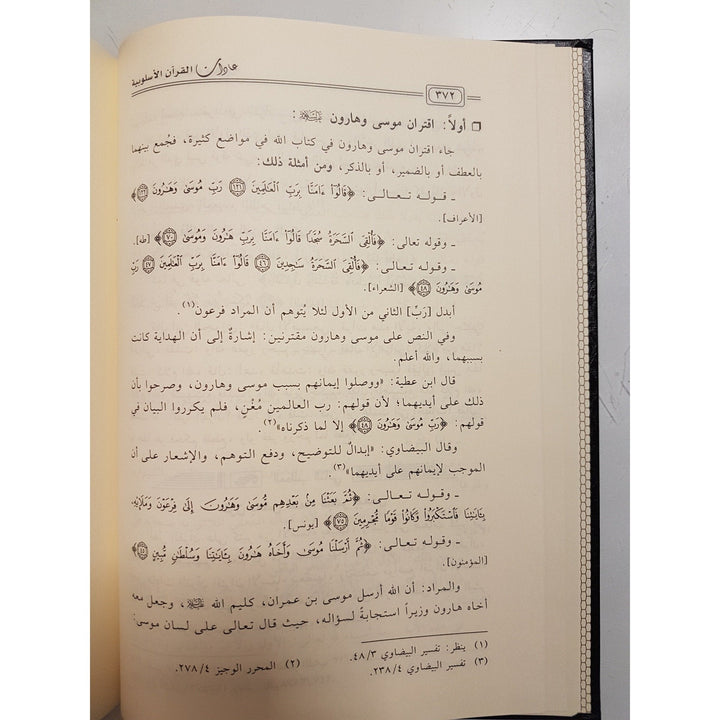 عادات القرآن الأسلوبية
٣٧٢
❒ أولاً: اقتران موسى وهارون عليهما السلام:
جاء اقتران موسى وهارون في كتاب الله في مواضع كثيرة، فجُمع بينهما
بالعطف أو بالضمير، أو بالذكر، ومن أمثلة ذلك:
ـ قوله تعالى: ﴿قَالُوٓا۟ ءَامَنَّا بِرَبِّ ٱلْعَـٰلَمِينَ ١٢١ رَبِّ مُوسَىٰ وَهَـٰرُونَ ١٢٢﴾
[الأعراف].
ـ وقوله تعالى: ﴿فَأُلْقِىَ ٱلسَّحَرَةُ سُجَّدًا قَالُوٓا۟ ءَامَنَّا بِرَبِّ هَـٰرُونَ وَمُوسَىٰ ٧٠﴾ [طه].
ـ وقوله تعالى: ﴿فَأُلْقِىَ ٱلسَّحَرَةُ سَـٰجِدِينَ ٤٦ قَالُوٓا۟ ءَامَنَّا بِرَبِّ ٱلْعَـٰلَمِينَ ٤٧ رَبِّ
مُوسَىٰ وَهَـٰرُونَ ٤٨﴾ [الشعراء].
أبدل [رَبِّ] الثاني من الأول لئلا يُتوهم أن المراد فرعون(١).
وفي النص على موسى وهارون مقترنين: إشارةٌ إلى أن الهداية كانت
بسببهما، والله أعلم.
قال ابن عطية: «ووصلوا إيمانهم بسبب موسى وهارون، وصرحوا بأن
ذلك على أيديهما؛ لأن قولهم: رب العالمين مُغْنٍ، فلم يكرروا البيان في
قولهم: ﴿رَبِّ مُوسَىٰ وَهَـٰرُونَ ٤٨﴾ إلا لما ذكرناه»(٢).
وقال البيضاوي: «إبدالٌ للتوضيح، ودفع التوهم، والإشعار على أن
الموجب لإيمانهم على أيديهما»(٣).
ـ وقوله تعالى: ﴿ثُمَّ بَعَثْنَا مِنۢ بَعْدِهِم مُّوسَىٰ وَهَـٰرُونَ إِلَىٰ فِرْعَوْنَ وَمَلَإِي۟هِ
بِـَٔايَـٰتِنَا فَٱسْتَكْبَرُوا۟ وَكَانُوا۟ قَوْمًا مُّجْرِمِينَ ٧٥﴾ [يونس].
ـ وقوله تعالى: ﴿ثُمَّ أَرْسَلْنَا مُوسَىٰ وَأَخَاهُ هَـٰرُونَ بِـَٔايَـٰتِنَا وَسُلْطَـٰنٍ مُّبِينٍ ٤٥﴾
[المؤمنون].
والمراد: أن الله أرسل موسى بن عمران، كليم الله ﷺ، وجعل معه
أخاه هارون وزيراً استجابةً لسؤاله، حيث قال تعالى على لسان موسى:
(١) ينظر: تفسير البيضاوي ٤٨/٣.
(٢) المحرر الوجيز ٢٧٨/٤.
(٣) تفسير البيضاوي ٢٣٨/٤.